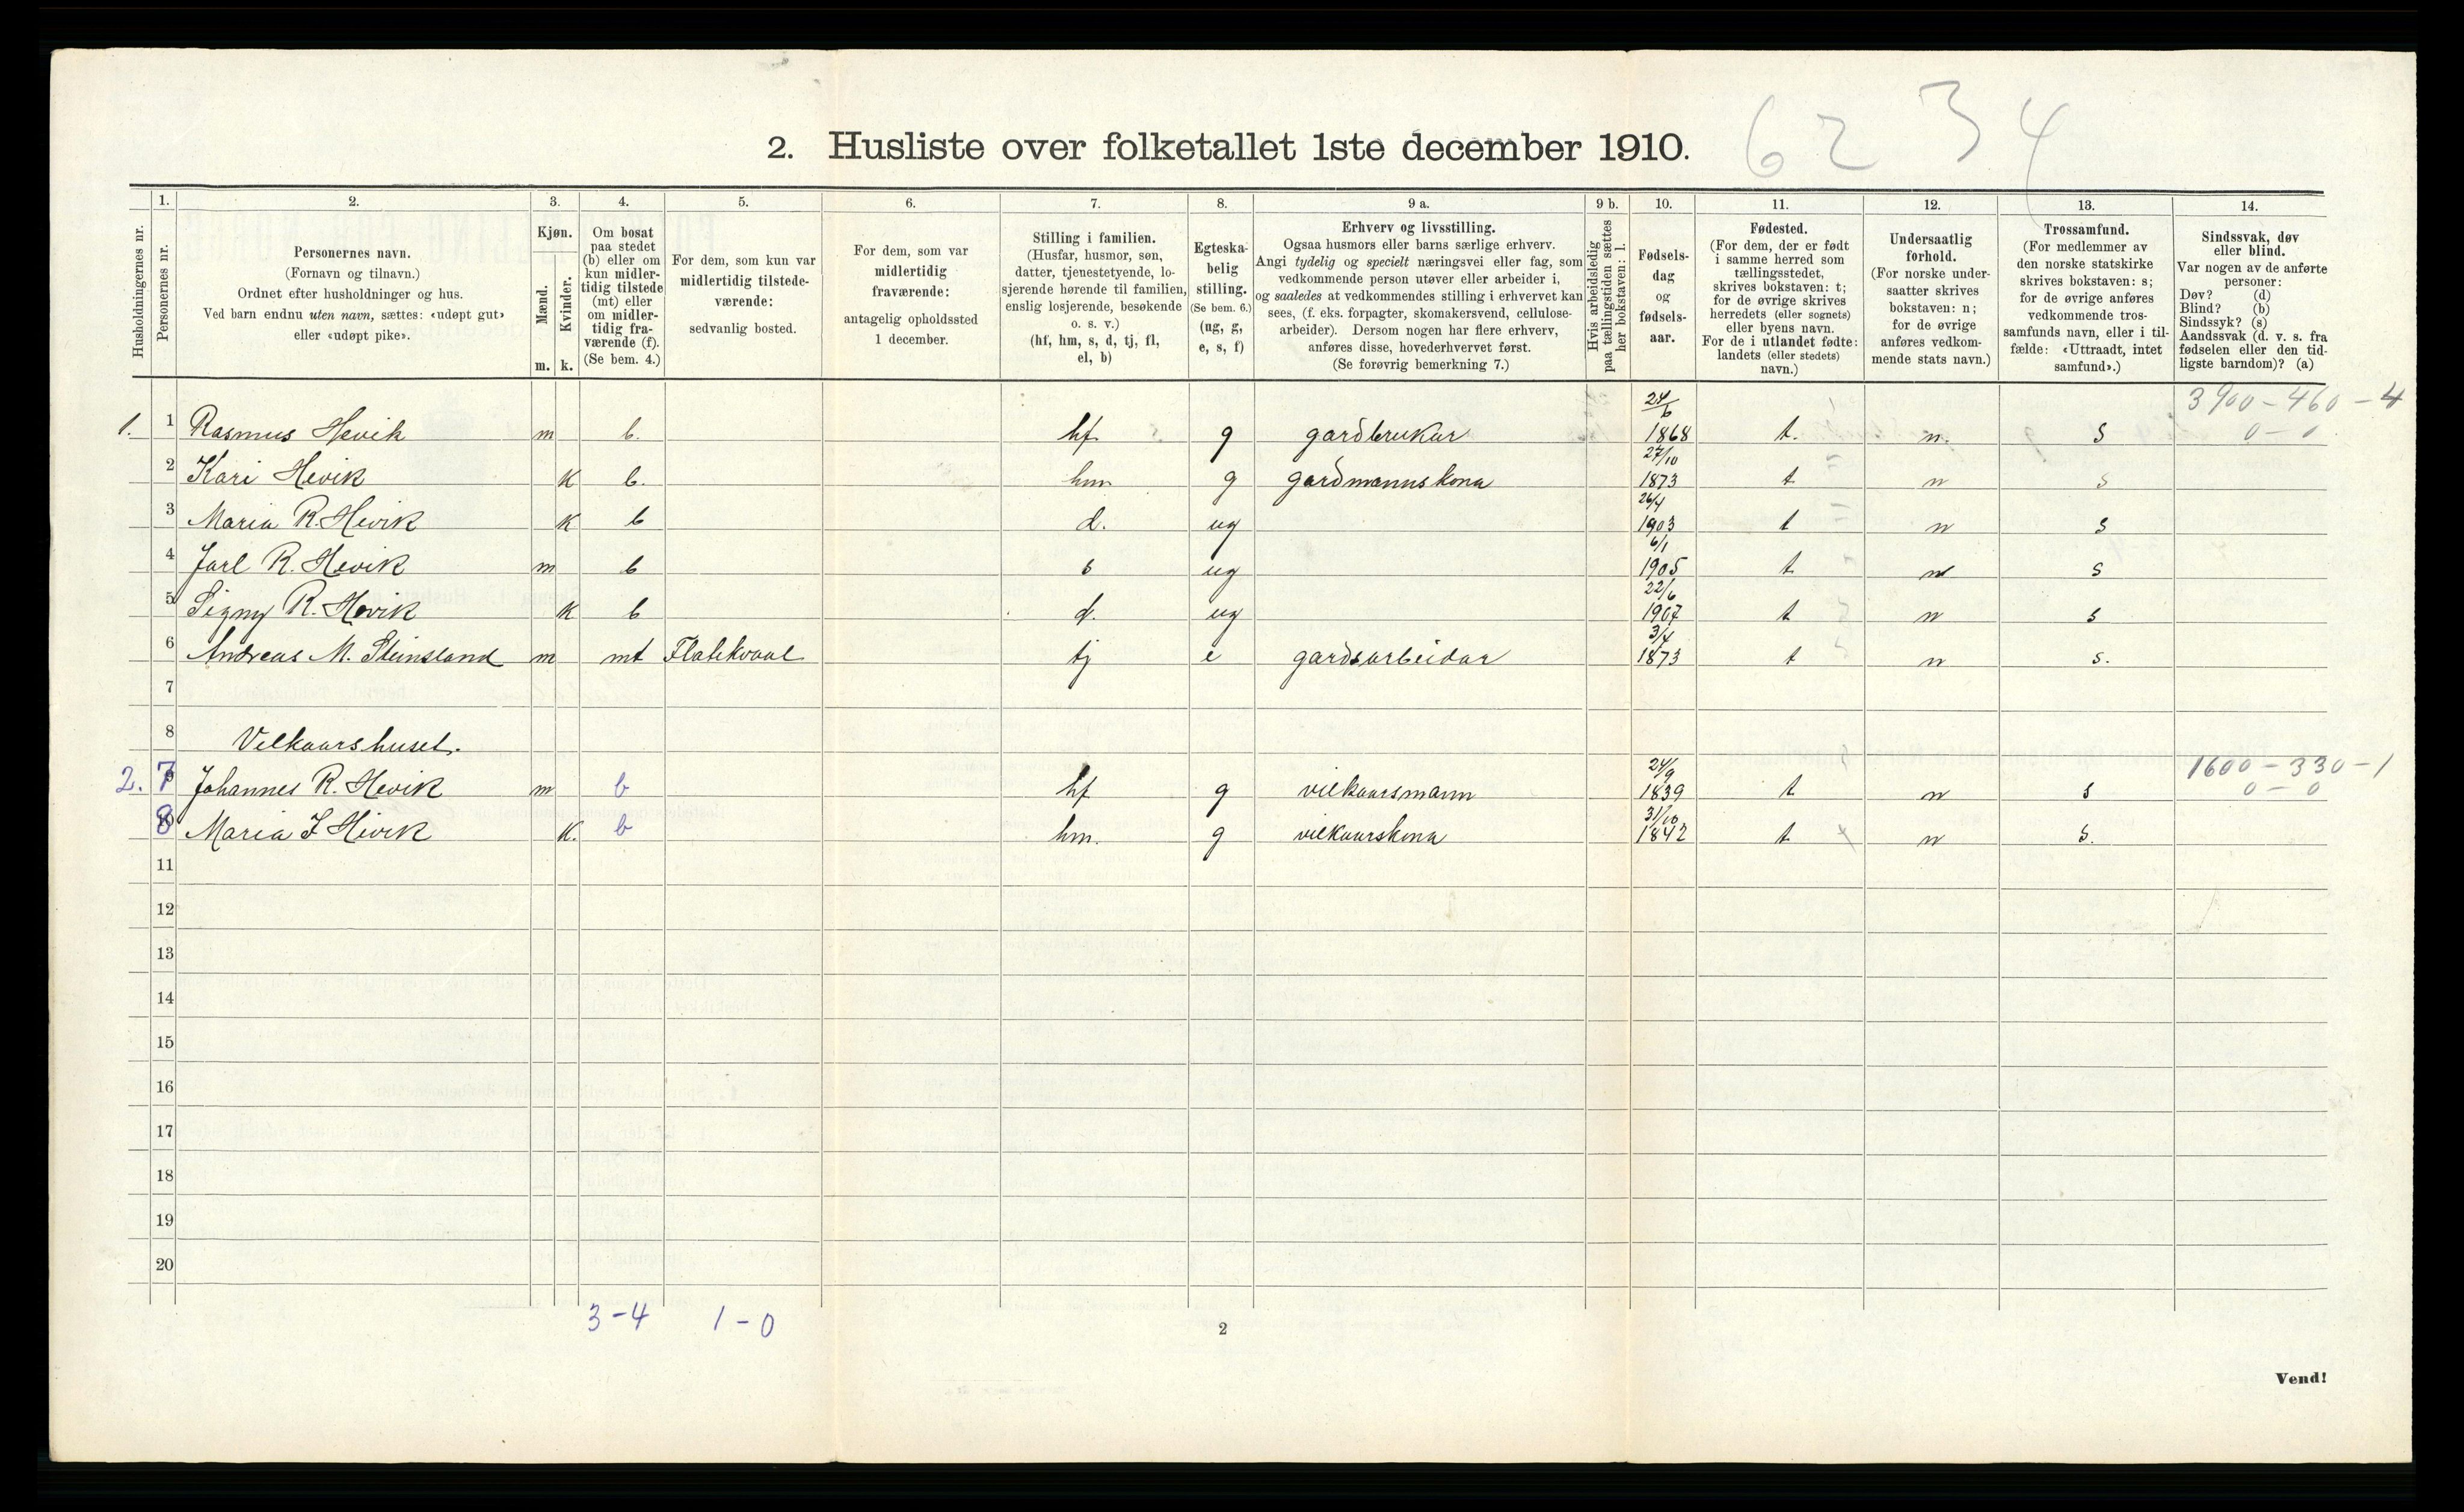 6 2 3 4
2. Husliste over folketallet 1ste december 1910.
Husholdningernes nr.
1.
Personernes nr.
2.
Personernes navn.
(Fornavn og tilnavn.)
Ordnet efter husholdninger og hus.
Ved barn endnu uten navn, sættes: «udøpt gut»
eller «udøpt pike».
3.
Kjøn.
Mænd.
Kvinder.
m. k.
4.
Om bosat
paa stedet
(b) eller om
kun midler-
tidig tilstede
(mt) eller
om midler-
tidig fra-
værende (f).
(Se bem. 4.)
5.
For dem, som kun var
midlertidig tilstede-
værende:
sedvanlig bosted.
6.
For dem, som var
midlertidig
fraværende:
antagelig opholdssted
1 december.
7.
Stilling i familien.
(Husfar, husmor, søn,
datter, tjenestetyende, lo-
sjerende hørende til familien,
enslig losjerende, besøkende
o. s. v.)
(hf, hm, s, d, tj, fl,
el, b)
8.
Egteska-
belig
stilling.
(Se bem. 6.)
(ug, g,
e, s, f)
9 a.
Erhverv og livsstilling.
Ogsaa husmors eller barns særlige erhverv.
Angi tydelig og specielt næringsvei eller fag, som
vedkommende person utøver eller arbeider i,
og saaledes at vedkommendes stilling i erhvervet kan
sees, (f. eks. forpagter, skomakersvend, cellulose-
arbeider). Dersom nogen har flere erhverv,
anføres disse, hovederhvervet først.
(Se forøvrig bemerkning 7.)
9 b.
Hvis arbeidsledig
paa tællingstiden sættes
her bokstaven: l.
10.
Fødsels-
dag
og
fødsels-
aar.
11.
Fødested.
(For dem, der er født
i samme herred som
tællingsstedet,
skrives bokstaven: t;
for de øvrige skrives
herredets (eller sognets)
eller byens navn.
For de i utlandet fødte:
landets (eller stedets)
navn.)
12.
Undersaatlig
forhold.
(For norske under-
saatter skrives
bokstaven: n;
for de øvrige
anføres vedkom-
mende stats navn.)
13.
Trossamfund.
(For medlemmer av
den norske statskirke
skrives bokstaven: s;
for de øvrige anføres
vedkommende tros-
samfunds navn, eller i til-
fælde: «Uttraadt, intet
samfund».)
14.
Sindssvak, døv
eller blind.
Var nogen av de anførte
personer:
Døv? (d)
Blind? (b)
Sindssyk? (s)
Aandssvak (d. v. s. fra
fødselen eller den tid-
ligste barndom)? (a)
3900 - 460 - 4
0 - 0
1. 1 Rasmus Hevik m b. hf. g gardbrukar 24/6 1868 t. n. s
2 Kari Hevik k b. hm g gardmannskona 27/10 1873 t n s
3 Maria R. Hevik k b d. ug 26/4 1903 t n s
4 Jarl R. Hevik m b s ug 6/1 1905 t n s
5 Signy R. Hevik k b d. ug 22/6 1907 t n s
6 Andreas M. Steinsland m mt Flatekvaal tj e gardsarbeidar 3/4 1873 t n s.
7
8 Velkaarshuset.
1600 - 330 - 1
0 - 0
2. 7 Johannes R. Hevik m b hf g vilkaarsmann 24/9 1839 t n s
8 Maria J Hevik k. b hm. g vilkaarskona 31/10 1842 t n s.
11
12
13
14
15
16
17
18
19
20
3 - 4 1 - 0
2
Vend!